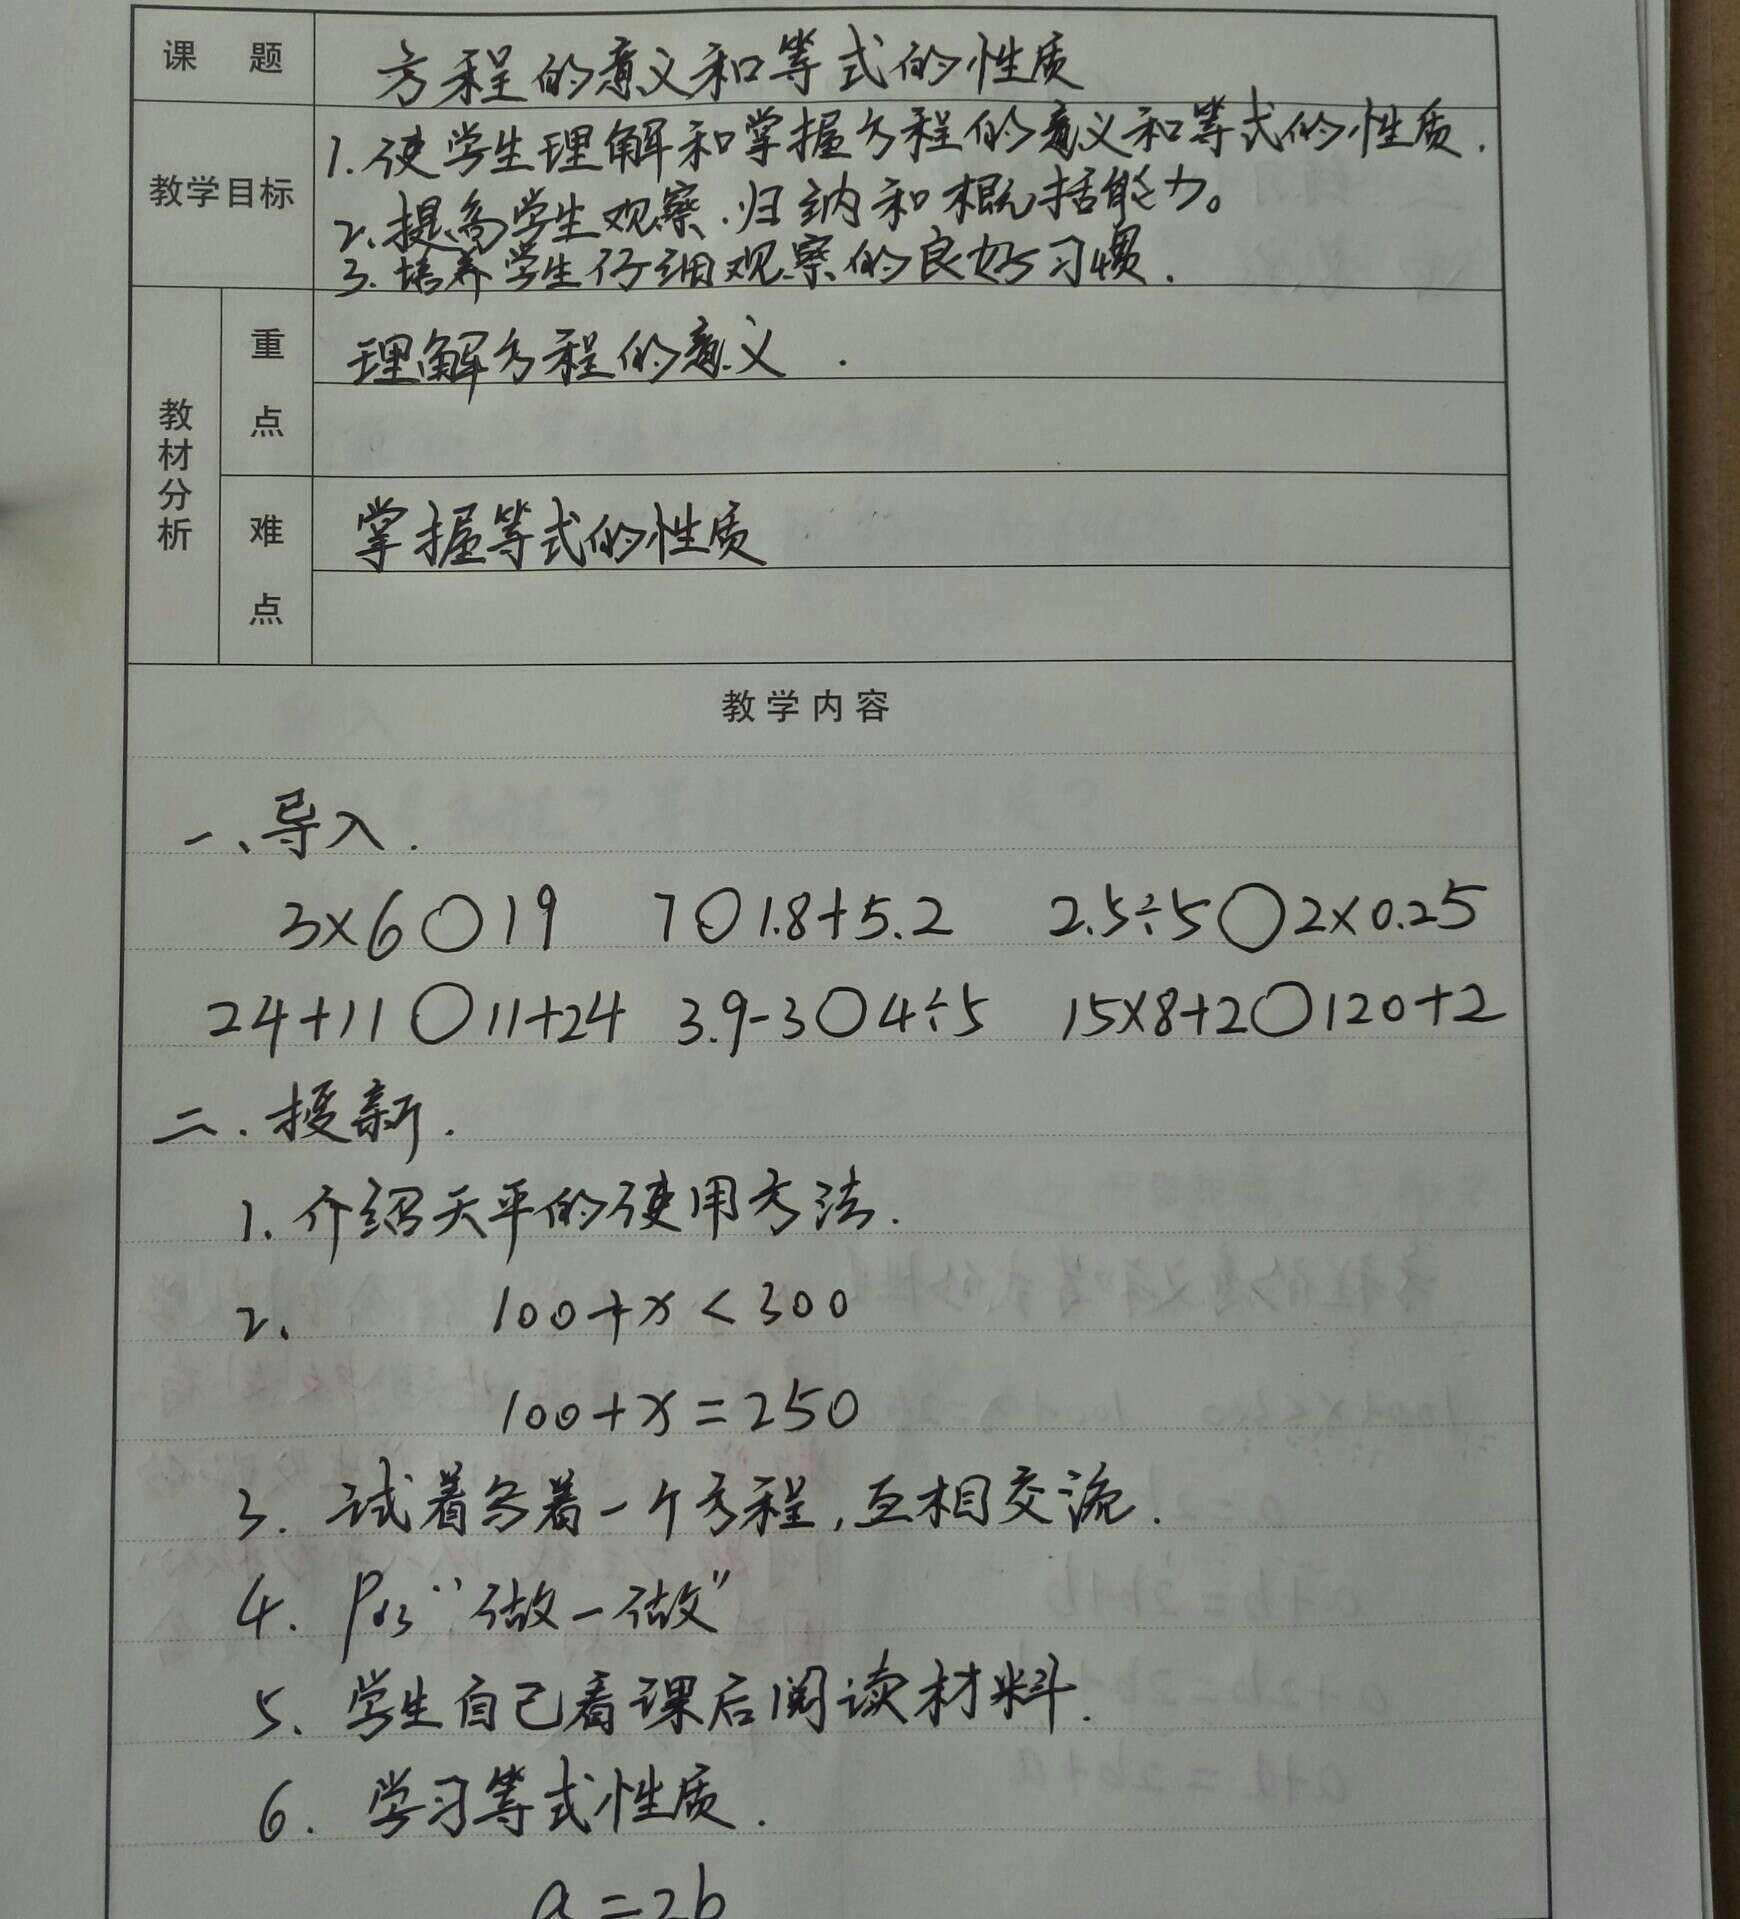 课 题 方程的意义和等式的性质
教学目标
1.使学生理解和掌握方程的意义和等式的性质.
2.提高学生观察.归纳和概括能力。
3.培养学生仔细观察的良好习惯.
教材分析
重点 理解方程的意义.
难点 掌握等式的性质
教学内容
一、导入.
3×6○19 7○1.8+5.2 2.5÷5○2×0.25
24+11○11+24 3.9-3○4÷5 15×8+2○120+2
二.授新.
1.介绍天平的使用方法.
2. 100+x<300
100+x=250
3.试着写着一个方程,互相交流.
4. P63"做一做"
5、学生自己看课后阅读材料.
6.学习等式性质.
a=2b